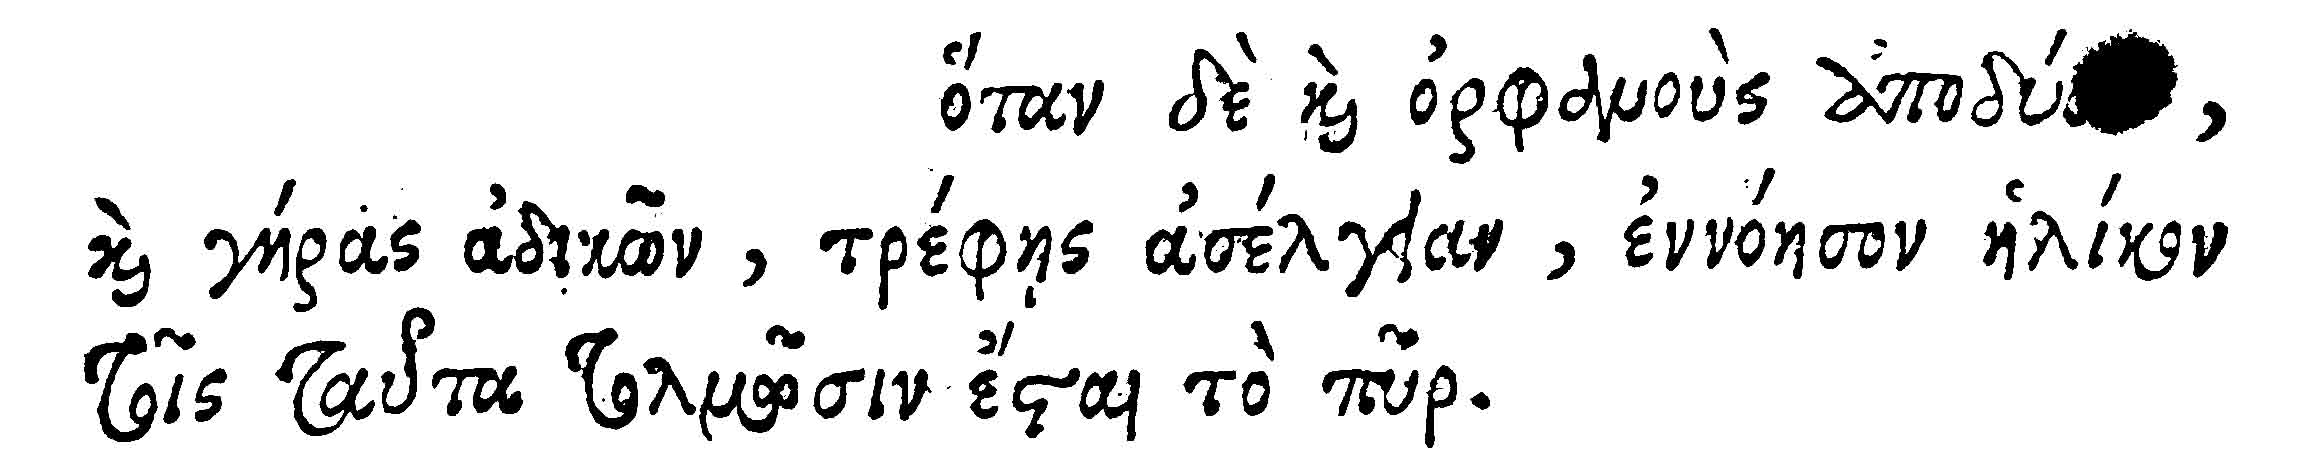 ὅταν δὲ καὶ ὀρφαλμοὺς ,
καὶ γήρας ἀδικῶν, τρέφῃς ἀσέλγειαν, ἐννόησον ἡλίκον
τοῖς ταῦτα τολμῶσιν ἔσται τὸ πῦρ.